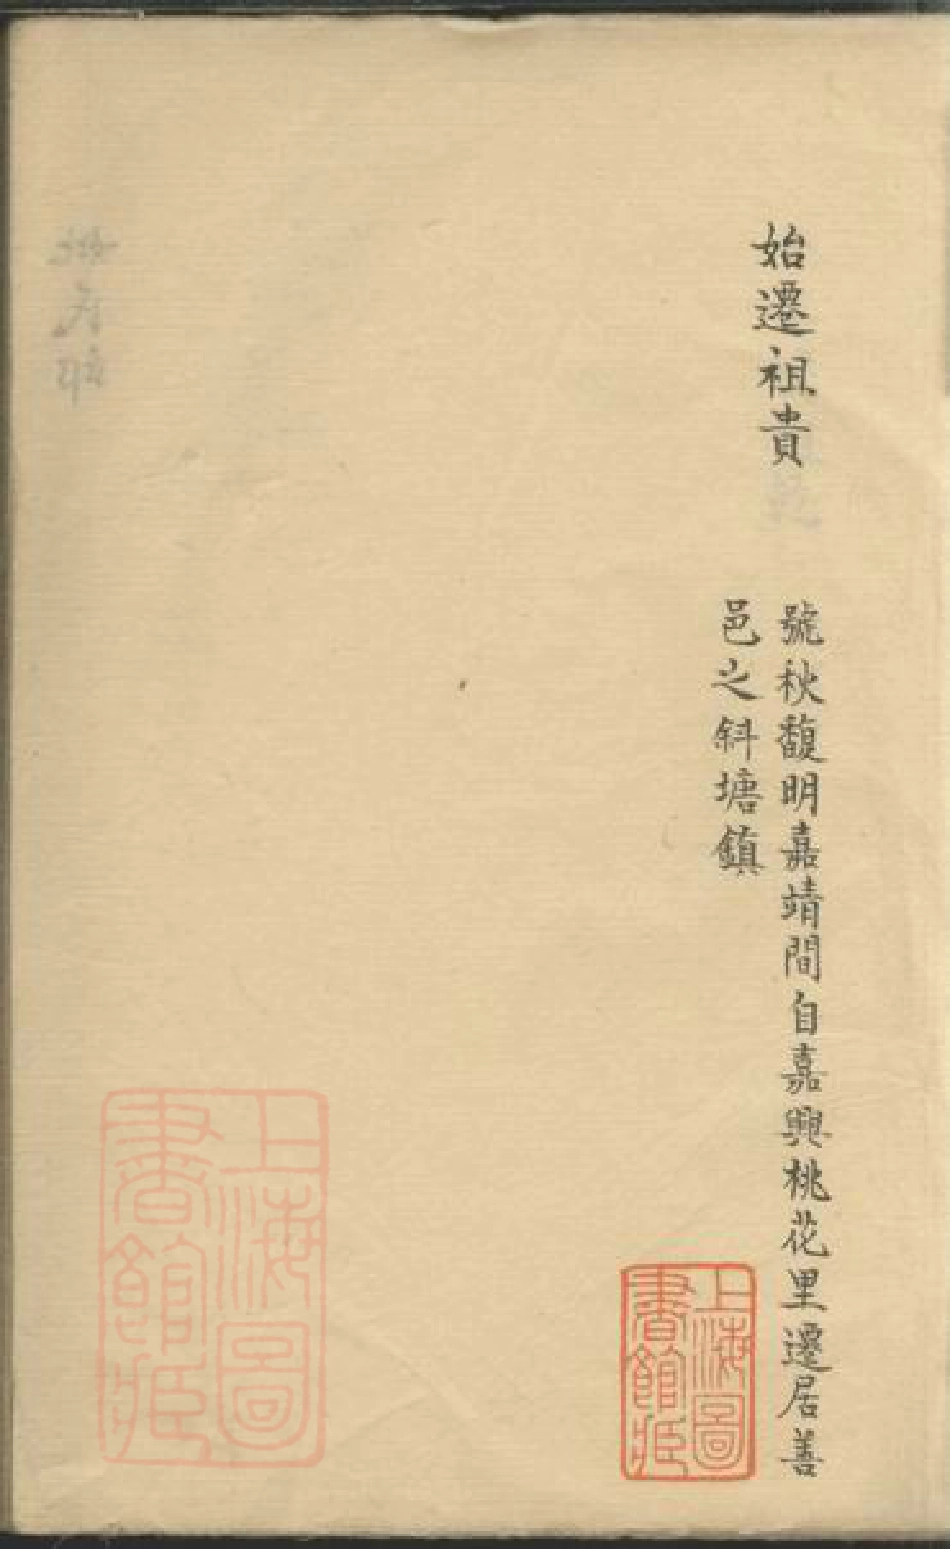 始遷祖貴
號秋馥明嘉靖間自嘉興桃花里遷居善
邑之斜塘鎮
上海圖
書館藏
上海圖
書館藏